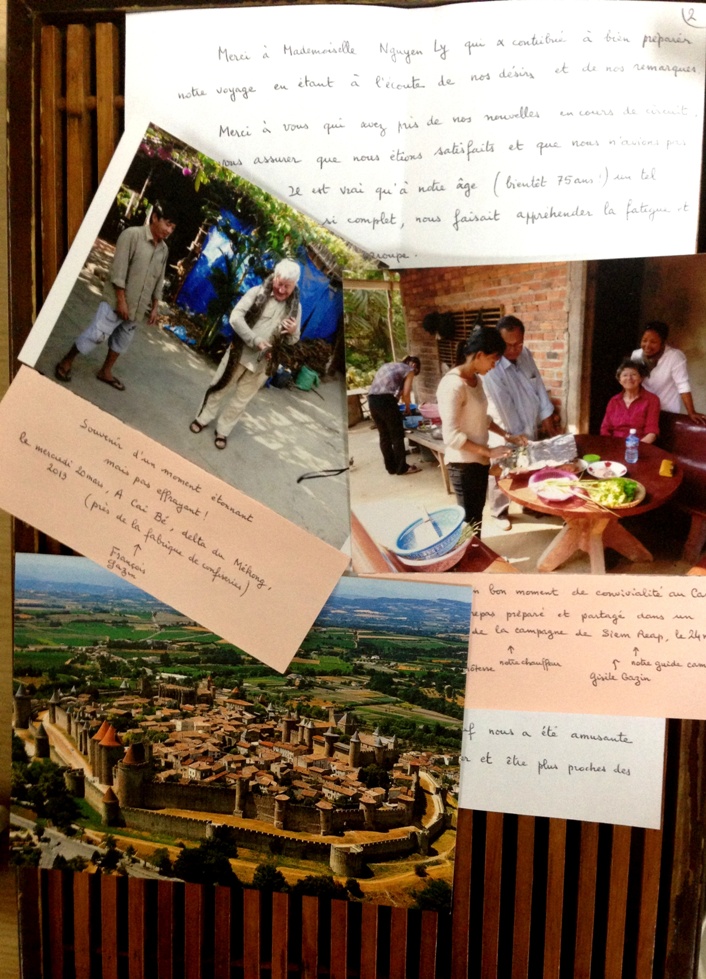 2
Merci à Mademoiselle Nguyen Ly qui a contribué à bien préparer
notre voyage en étant à l'écoute de nos désirs et de nos remarques.
Merci à vous qui avez pris de nos nouvelles en cours de circuit.
vous assurer que nous étions satisfaits et que nous n'avions pas
Il est vrai qu'à notre âge (bientôt 75 ans !) un tel
si complet, nous faisait appréhender la fatigue et
groupe.
Souvenir d'un moment étonnant
mais pas effrayant !
le mercredi 20 mars, A Cai Bé, delta du Mékong,
2013
(près de la fabrique de confiseries)
↑
François
Gazin
n bon moment de convivialité au Ca
repas préparé et partagé dans un
de la campagne de Siem Reap, le 24 m
↑ ↑
hôtesse notre chauffeur ↑ notre guide cam
Gisèle Gazin
f nous a été amusante
er et être plus proches des